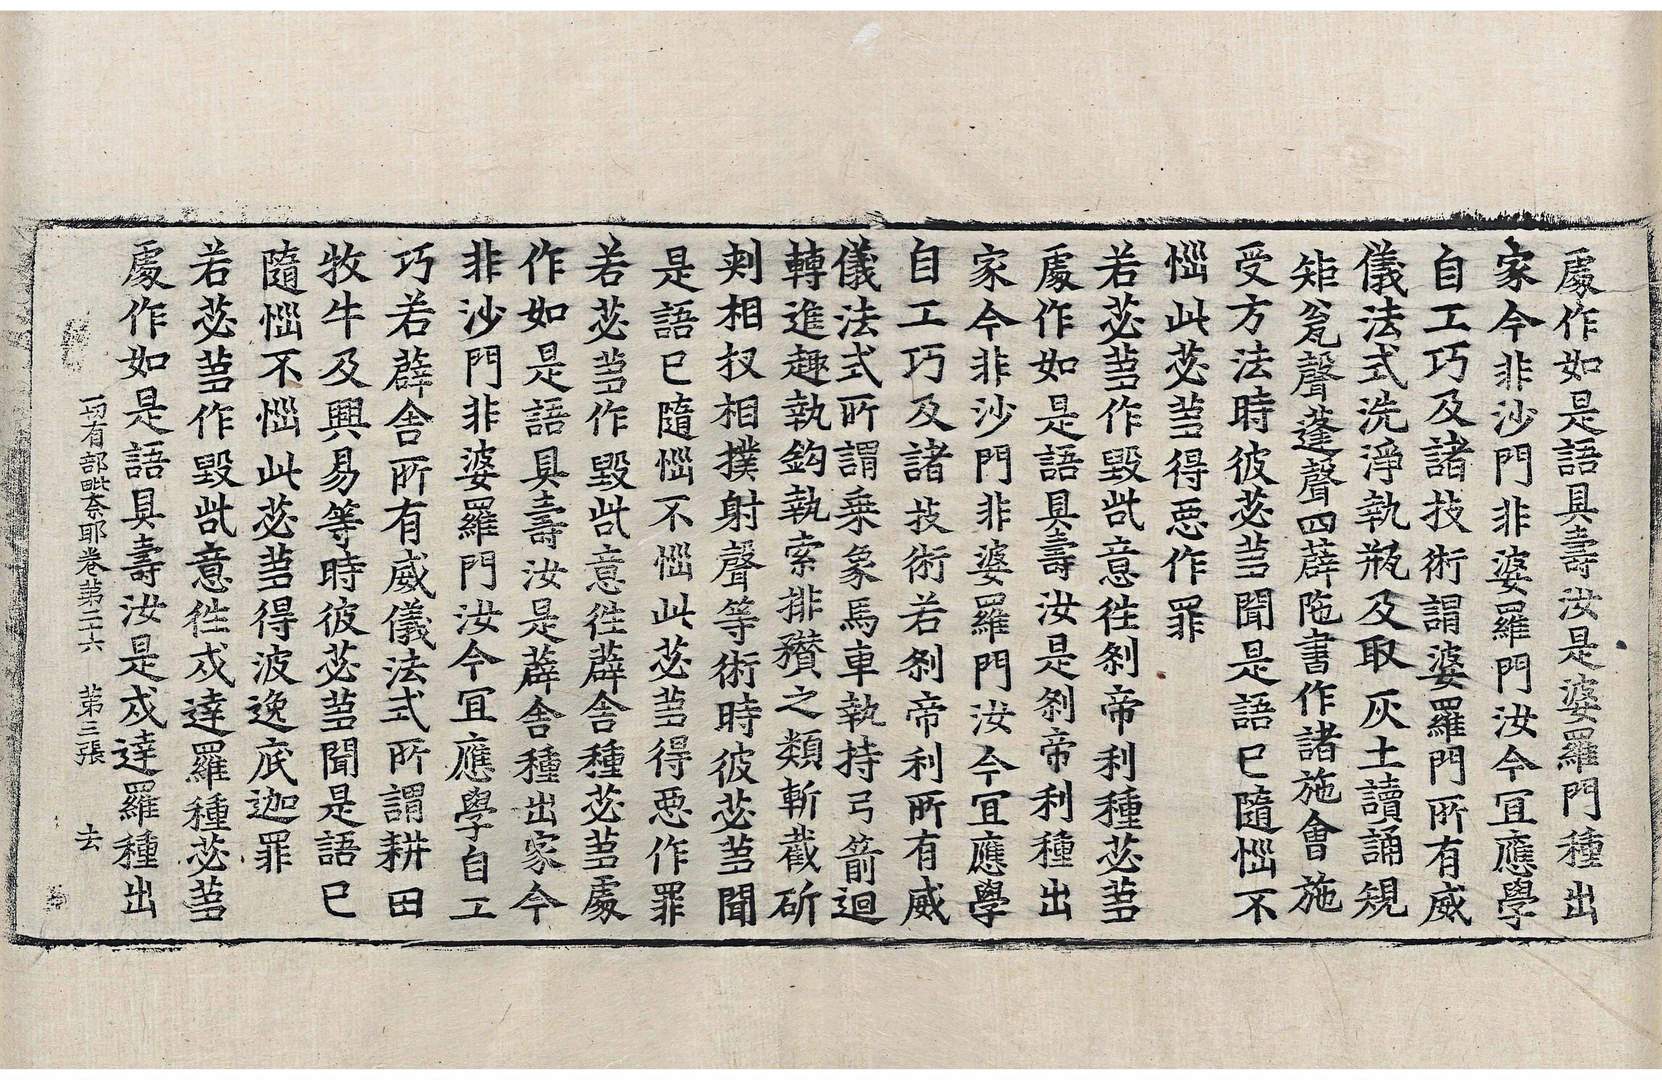 處作如是語具壽汝是婆羅門種出
家今非沙門非婆羅門汝今宜應學
自工巧及諸技術謂婆羅門所有威
儀法式洗淨執瓶及取灰土讀誦規
矩瓮聲蓬聲四薜陁書作諸施會施
受方法時彼苾芻聞是語已隨惱不
惱此苾芻得惡作罪
若苾芻作毀呰意徃刹帝利種苾芻
處作如是語具壽汝是刹帝利種出
家今非沙門非婆羅門汝今宜應學
自工巧及諸技術若刹帝利所有威
儀法式所謂乗象馬車執持弓箭迴
轉進趣執鈎執索排穳之類斬截斫
刾相扠相撲射聲等術時彼苾芻聞
是語已隨惱不惱此苾芻得惡作罪
若苾芻作毀呰意徃薜舍種苾芻處
作如是語具壽汝是薜舍種出家今
非沙門非婆羅門汝今宜應學自工
巧若薜舍所有威儀法式所謂耕田
牧牛及興易等時彼苾芻聞是語已
隨惱不惱此苾芻得波逸底迦罪
若苾芻作毀呰意徃戍達羅種苾芻
處作如是語具壽汝是戍達羅種出
一切有部毗奈耶卷第二十六 第三張 去